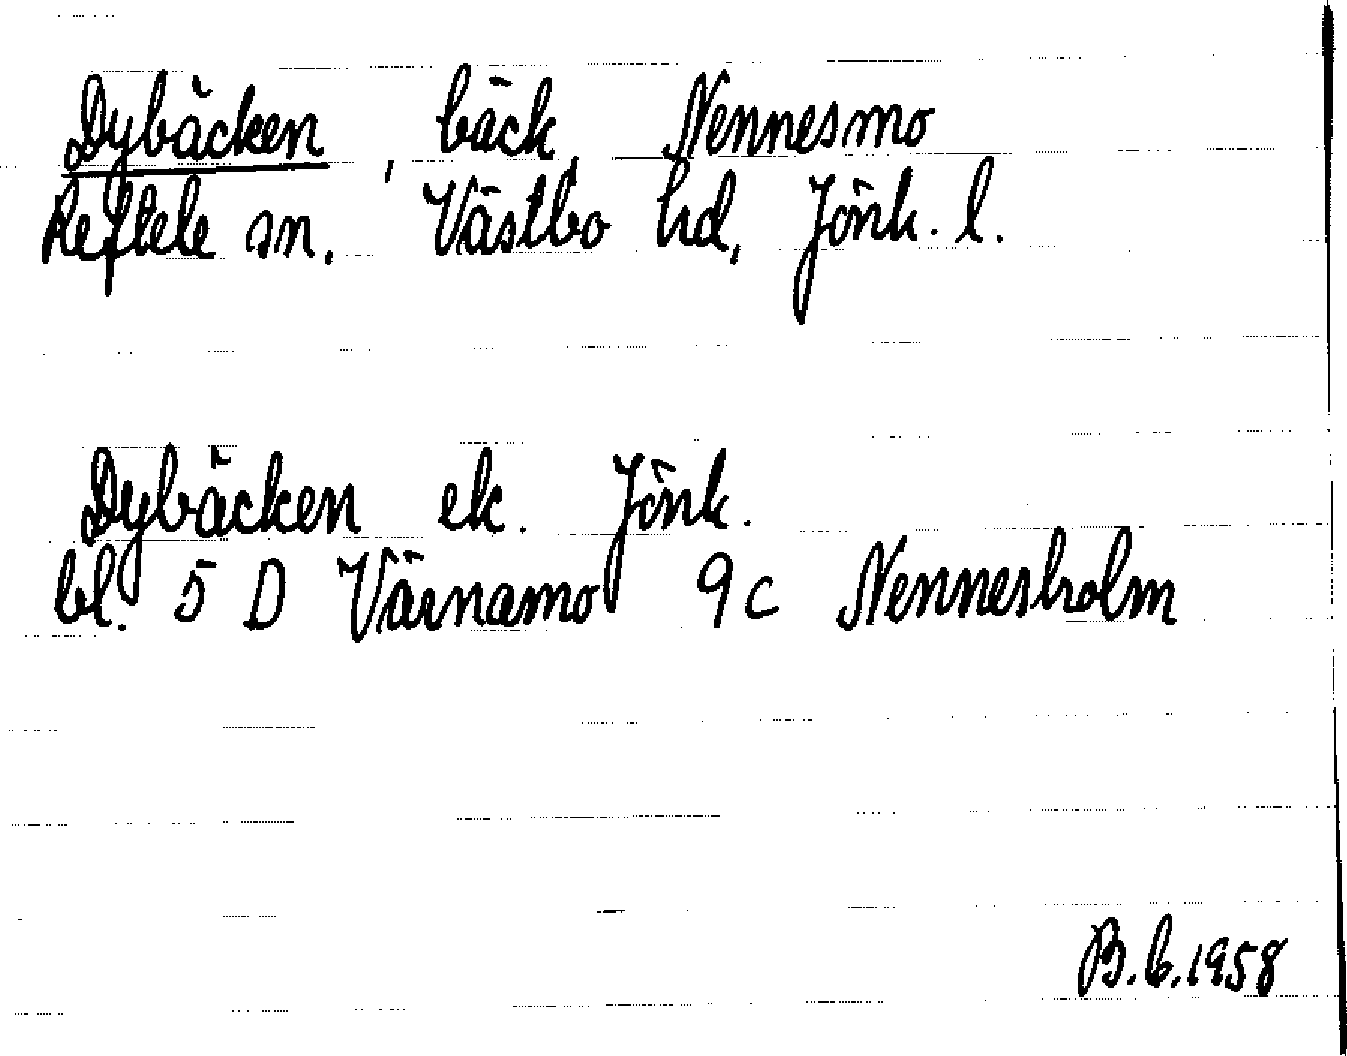 Dybäcken, bäck, Nennesmo
Reftele sn. Västbo hd, Jönk. l.
Dybäcken ek. Jönk.
bl. 5 D Värnamo 9 c Nennesholm
B.b.1958